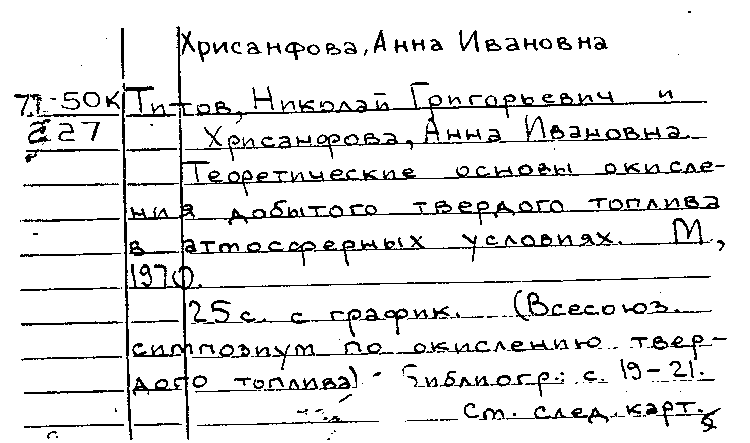 Хрисанфова, Анна Ивановна
71-50К Титов, Николай Григорьевич и
227 Хрисанфова, Анна Ивановна.
Теоретические основы окисле-
ния добытого твердого топлива
в атмосферных условиях. М,
1970.
25 с. с график. (Всесоюз.
симпозиум по окислению твер-
дого топлива) - Библиогр.: с. 19-21.
См. след. карт.